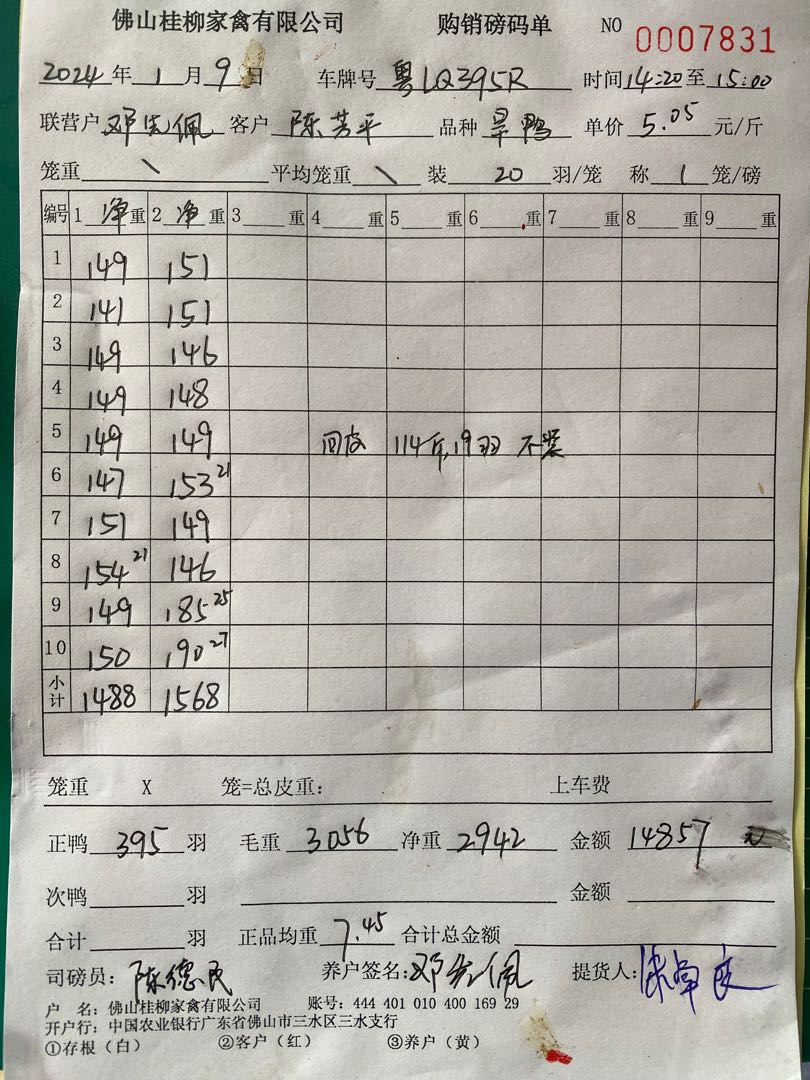 佛山桂柳家禽有限公司 购销磅码单 NO 0007831
2024 年 1 月 9 日 车牌号 粤LQ395R 时间 14:20 至 15:00
联营户 邓先佩 客户 陈芳平 品种 旱鸭 单价 5.05 元/斤
笼重 \ 平均笼重 \ 装 20 羽/笼 称 1 笼/磅
编号 1 净 重 2 净 重 3 重 4 重 5 重 6 重 7 重 8 重 9 重
1 149 151
2 141 151
3 149 146
4 149 148
5 149 149 回皮 114斤,19羽 不装
6 147 153 21
7 151 149
8 154 21 146
9 149 185 25
10 150 190 27
小计 1488 1568
笼重 X 笼=总皮重: 上车费
正鸭 395 羽 毛重 3056 净重 2942 金额 14857
次鸭 羽 金额
合计 羽 正品均重 7.45 合计总金额
司磅员: 陈德民 养户签名: 邓先佩 提货人:
户 名: 佛山桂柳家禽有限公司 账号: 444 401 010 400 169 29
开户行: 中国农业银行广东省佛山市三水区三水支行
①存根(白) ②客户(红) ③养户(黄)